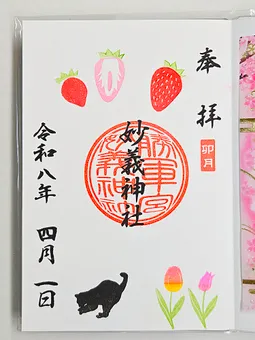 奉拝
卯月
妙義神社
令和八年 四月一日